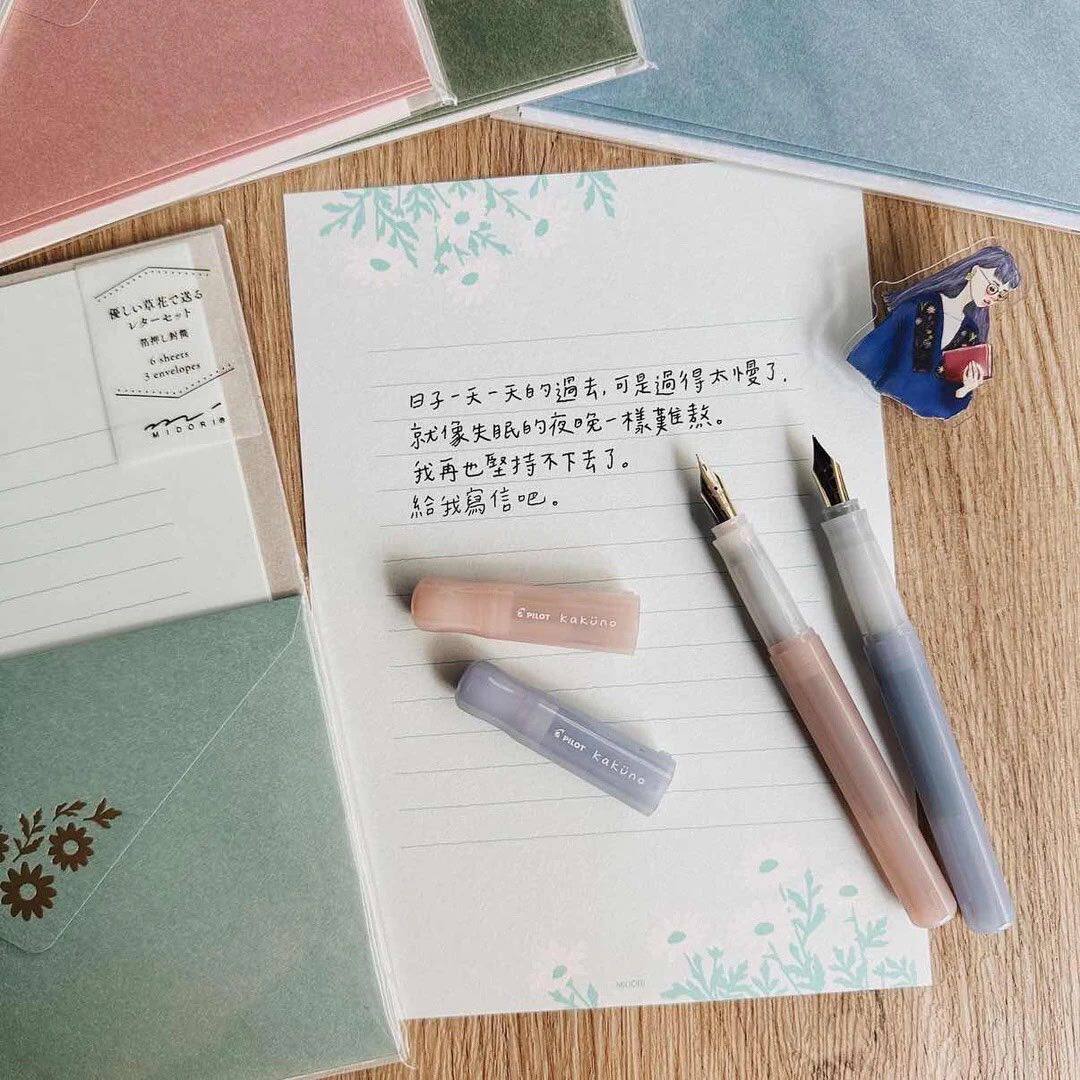 優しい草花で送る
レターセット
箔押し封筒
6 sheets
3 envelopes
MIDORI®
日子一天一天的過去,可是過得太慢了,
就像失眠的夜晚一樣難熬。
我再也堅持不下去了。
給我寫信吧。
PILOT kaküno
PILOT kaküno
MIDORI